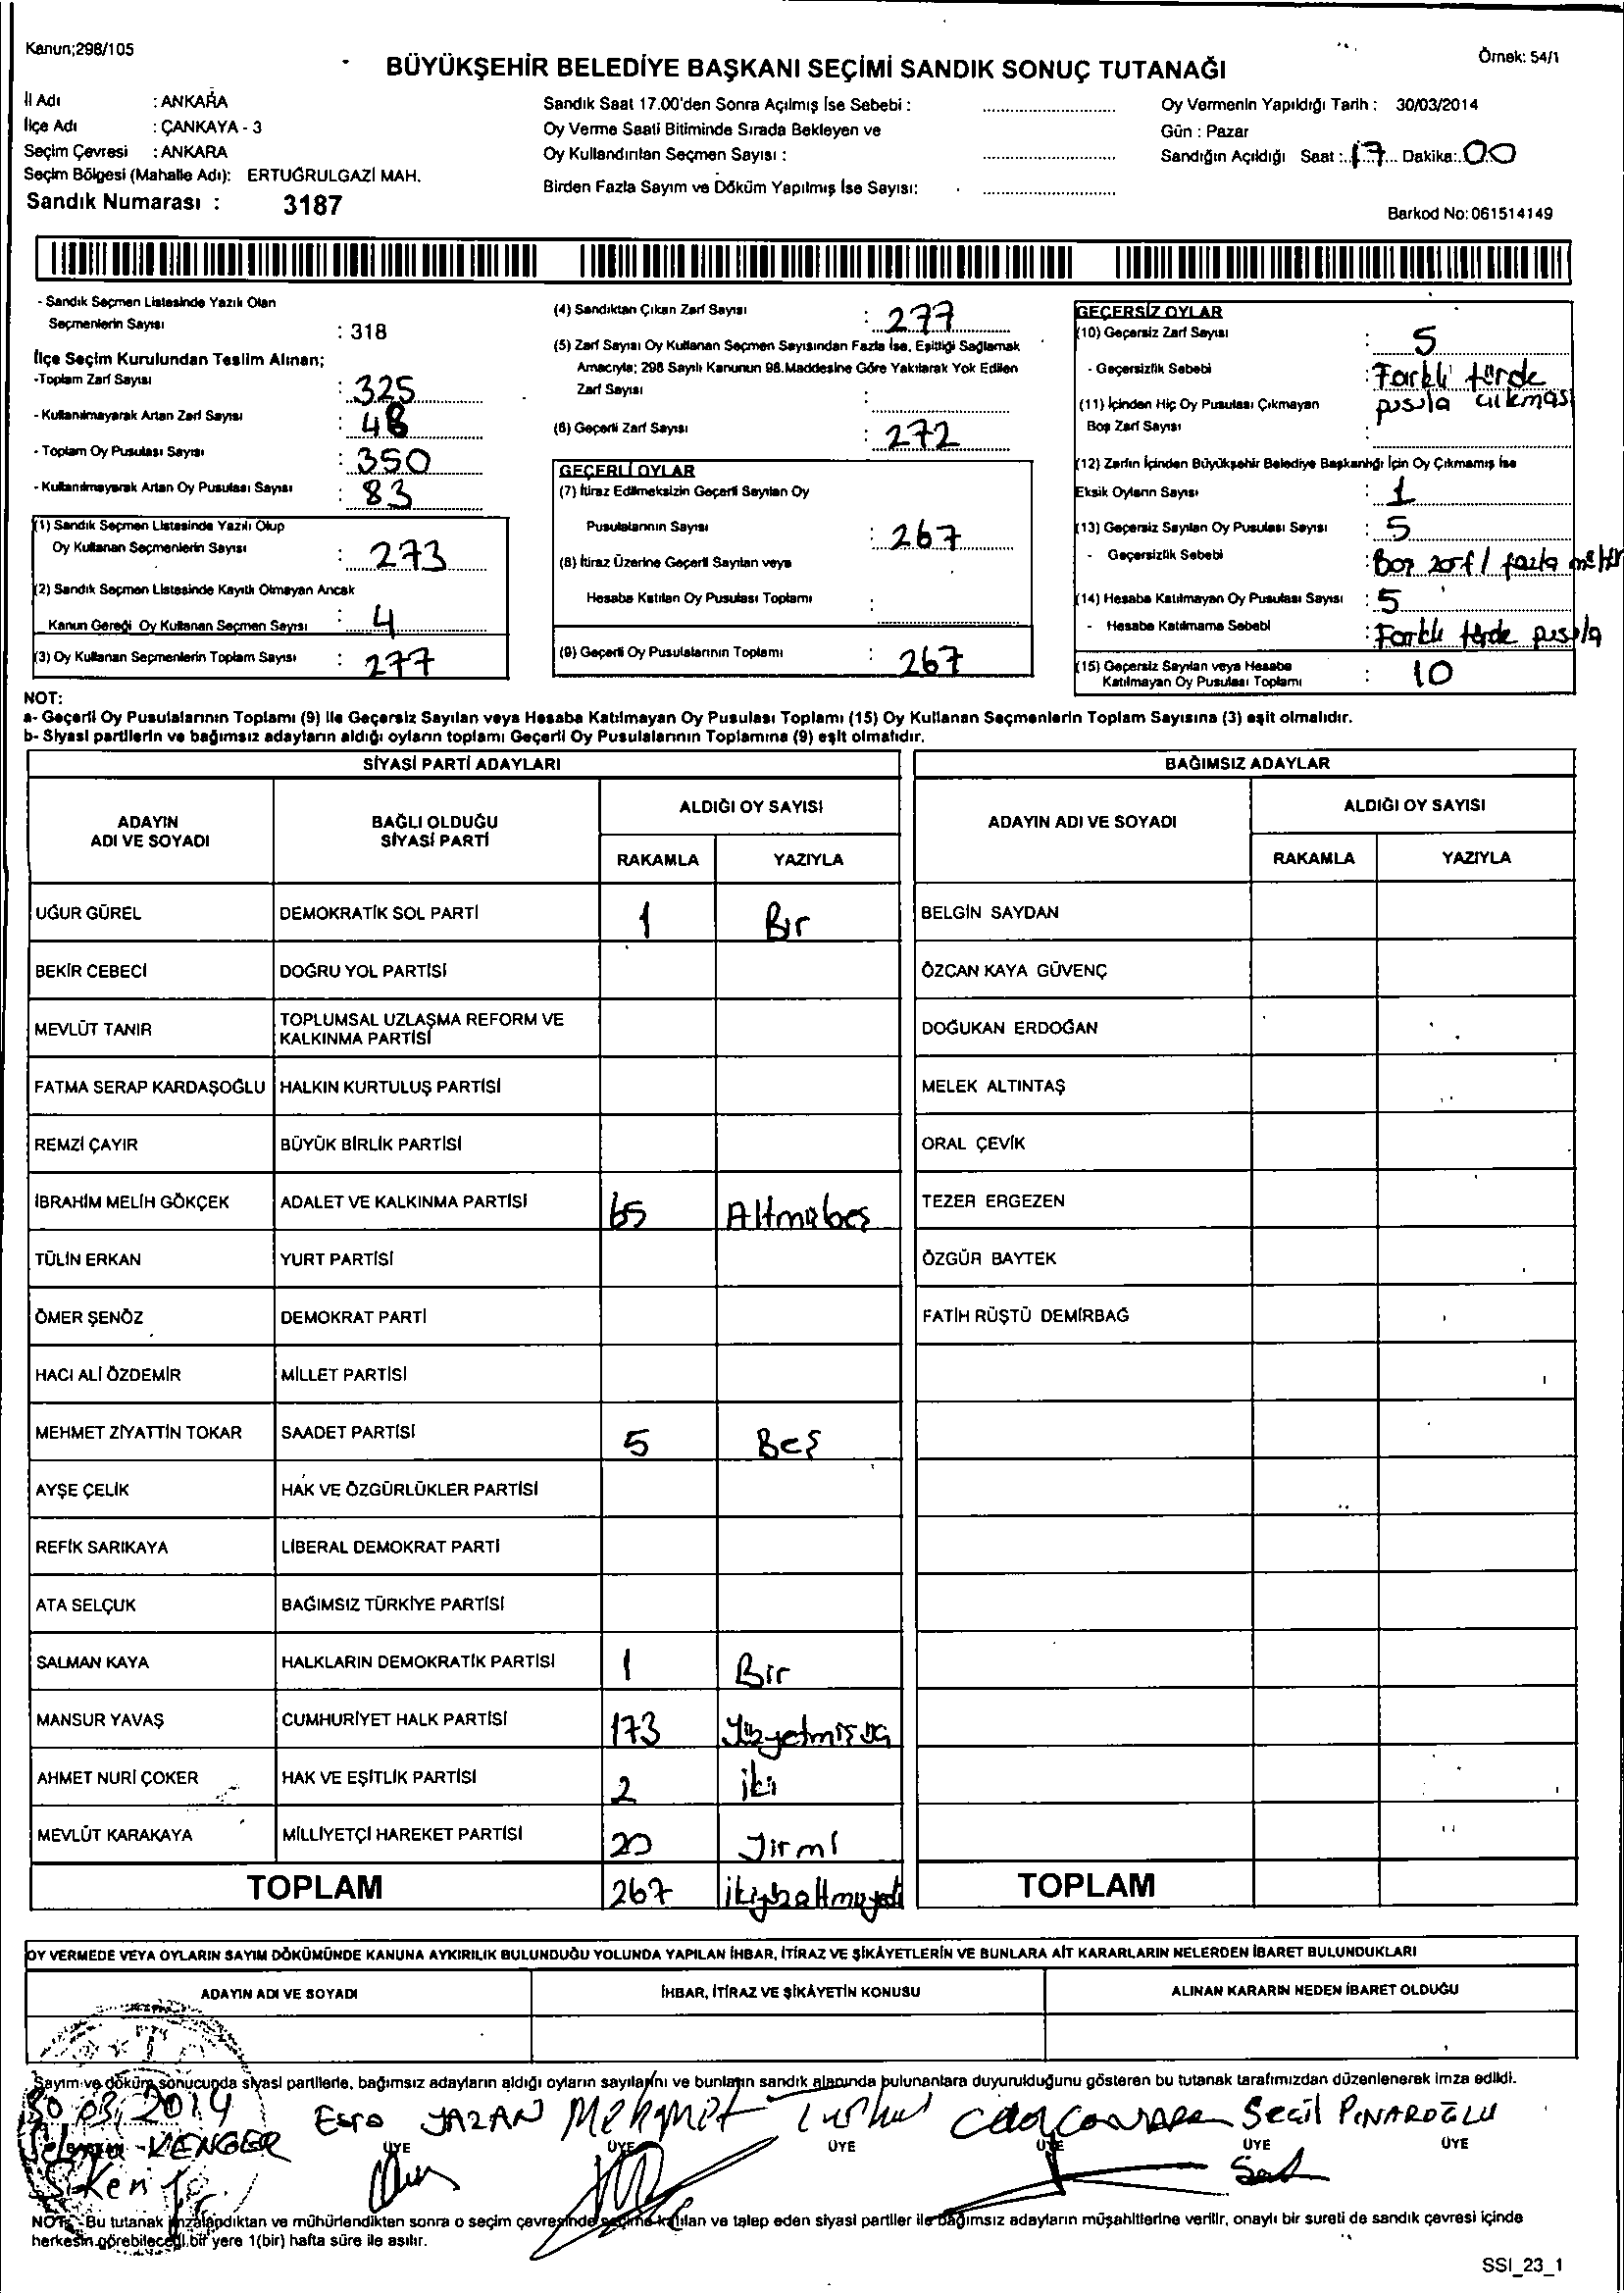 Kanun;298/105
Örnek: 54/1
BÜYÜKŞEHİR BELEDİYE BAŞKANI SEÇİMİ SANDIK SONUÇ TUTANAĞI
İl Adı : ANKARA
İlçe Adı : ÇANKAYA - 3
Seçim Çevresi : ANKARA
Seçim Bölgesi (Mahalle Adı): ERTUĞRULGAZİ MAH.
Sandık Numarası : 3187
Sandık Saat 17.00'den Sonra Açılmış İse Sebebi :
Oy Verme Saati Bitiminde Sırada Bekleyen ve
Oy Kullandırılan Seçmen Sayısı :
Birden Fazla Sayım ve Döküm Yapılmış İse Sayısı:
Oy Vermenin Yapıldığı Tarih : 30/03/2014
Gün : Pazar
Sandığın Açıldığı Saat : 17 Dakika: 00
Barkod No: 061514149
- Sandık Seçmen Listesinde Yazılı Olan
Seçmenlerin Sayısı : 318
İlçe Seçim Kurulundan Teslim Alınan;
-Toplam Zarf Sayısı : 325
- Kullanılmayarak Artan Zarf Sayısı : 48
- Toplam Oy Pusulası Sayısı : 350
- Kullanılmayarak Artan Oy Pusulası Sayısı : 83
(1) Sandık Seçmen Listesinde Yazılı Olup
Oy Kullanan Seçmenlerin Sayısı : 273
(2) Sandık Seçmen Listesinde Kayıtlı Olmayan Ancak
Kanun Gereği Oy Kullanan Seçmen Sayısı : 4
(3) Oy Kullanan Seçmenlerin Toplam Sayısı : 277
(4) Sandıktan Çıkan Zarf Sayısı : 277
(5) Zarf Sayısı Oy Kullanan Seçmen Sayısından Fazla İse, Eşitliği Sağlamak
Amacıyla; 298 Sayılı Kanunun 98.Maddesine Göre Yakılarak Yok Edilen
Zarf Sayısı :
(6) Geçerli Zarf Sayısı : 272
GEÇERLİ OYLAR
(7) İtiraz Edilmeksizin Geçerli Sayılan Oy
Pusulalarının Sayısı : 267
(8) İtiraz Üzerine Geçerli Sayılan veya
Hesaba Katılan Oy Pusulası Toplamı :
(9) Geçerli Oy Pusulalarının Toplamı : 267
GEÇERSİZ OYLAR
(10) Geçersiz Zarf Sayısı : 5
- Geçersizlik Sebebi : Farklı türde
pusula çıkması
(11) İçinden Hiç Oy Pusulası Çıkmayan
Boş Zarf Sayısı :
(12) Zarfın İçinden Büyükşehir Belediye Başkanlığı İçin Oy Çıkmamış İse
Eksik Oyların Sayısı : 1
(13) Geçersiz Sayılan Oy Pusulası Sayısı : 5
- Geçersizlik Sebebi : Boş zarf / fazla mühür
(14) Hesaba Katılmayan Oy Pusulası Sayısı : 5
- Hesaba Katılmama Sebebi : Farklı türde pusula
(15) Geçersiz Sayılan veya Hesaba
Katılmayan Oy Pusulası Toplamı : 10
NOT:
a- Geçerli Oy Pusulalarının Toplamı (9) ile Geçersiz Sayılan veya Hesaba Katılmayan Oy Pusulası Toplamı (15) Oy Kullanan Seçmenlerin Toplam Sayısına (3) eşit olmalıdır.
b- Siyasi partilerin ve bağımsız adayların aldığı oyların toplamı Geçerli Oy Pusulalarının Toplamına (9) eşit olmalıdır.
SİYASİ PARTİ ADAYLARI
BAĞIMSIZ ADAYLAR
ADAYIN
ADI VE SOYADI
BAĞLI OLDUĞU
SİYASİ PARTİ
ALDIĞI OY SAYISI
RAKAMLA YAZIYLA
ADAYIN ADI VE SOYADI
ALDIĞI OY SAYISI
RAKAMLA YAZIYLA
UĞUR GÜREL DEMOKRATİK SOL PARTİ 1 Bir BELGİN SAYDAN
BEKİR CEBECİ DOĞRU YOL PARTİSİ ÖZCAN KAYA GÜVENÇ
MEVLÜT TANIR TOPLUMSAL UZLAŞMA REFORM VE
KALKINMA PARTİSİ DOĞUKAN ERDOĞAN
FATMA SERAP KARDAŞOĞLU HALKIN KURTULUŞ PARTİSİ MELEK ALTINTAŞ
REMZİ ÇAYIR BÜYÜK BİRLİK PARTİSİ ORAL ÇEVİK
İBRAHİM MELİH GÖKÇEK ADALET VE KALKINMA PARTİSİ 65 Altmışbeş TEZER ERGEZEN
TÜLİN ERKAN YURT PARTİSİ ÖZGÜR BAYTEK
ÖMER ŞENÖZ DEMOKRAT PARTİ FATİH RÜŞTÜ DEMİRBAĞ
HACI ALİ ÖZDEMİR MİLLET PARTİSİ
MEHMET ZİYATTİN TOKAR SAADET PARTİSİ 5 Beş
AYŞE ÇELİK HAK VE ÖZGÜRLÜKLER PARTİSİ
REFİK SARIKAYA LİBERAL DEMOKRAT PARTİ
ATA SELÇUK BAĞIMSIZ TÜRKİYE PARTİSİ
SALMAN KAYA HALKLARIN DEMOKRATİK PARTİSİ 1 Bir
MANSUR YAVAŞ CUMHURİYET HALK PARTİSİ 173 Yüzyetmişüç
AHMET NURİ ÇOKER HAK VE EŞİTLİK PARTİSİ 2 iki
MEVLÜT KARAKAYA MİLLİYETÇİ HAREKET PARTİSİ 20 Yirmi
TOPLAM 267 ikiyüzaltmışyedi TOPLAM
OY VERMEDE VEYA OYLARIN SAYIM DÖKÜMÜNDE KANUNA AYKIRILIK BULUNDUĞU YOLUNDA YAPILAN İHBAR, İTİRAZ VE ŞİKÂYETLERİN VE BUNLARA AİT KARARLARIN NELERDEN İBARET BULUNDUKLARI
ADAYIN ADI VE SOYADI İHBAR, İTİRAZ VE ŞİKÂYETİN KONUSU ALINAN KARARIN NEDEN İBARET OLDUĞU
Sayım ve döküm sonucunda siyasi partilerle, bağımsız adayların aldığı oyların sayılarını ve bunların sandık alanında bulunanlara duyurulduğunu gösteren bu tutanak tarafımızdan düzenlenerek imza edildi.
30.03.2014 Esra YAZAN Mehmet Seçil PINAROĞLU
KENGER ÜYE ÜYE ÜYE ÜYE ÜYE ÜYE
NOT: Bu tutanak imzalandıktan ve mühürlendikten sonra o seçim çevresinde seçime katılan ve talep eden siyasi partiler ile bağımsız adayların müşahitlerine verilir, onaylı bir sureti de sandık çevresi içinde
herkesin görebileceği bir yere 1(bir) hafta süre ile asılır.
SSI_23_1